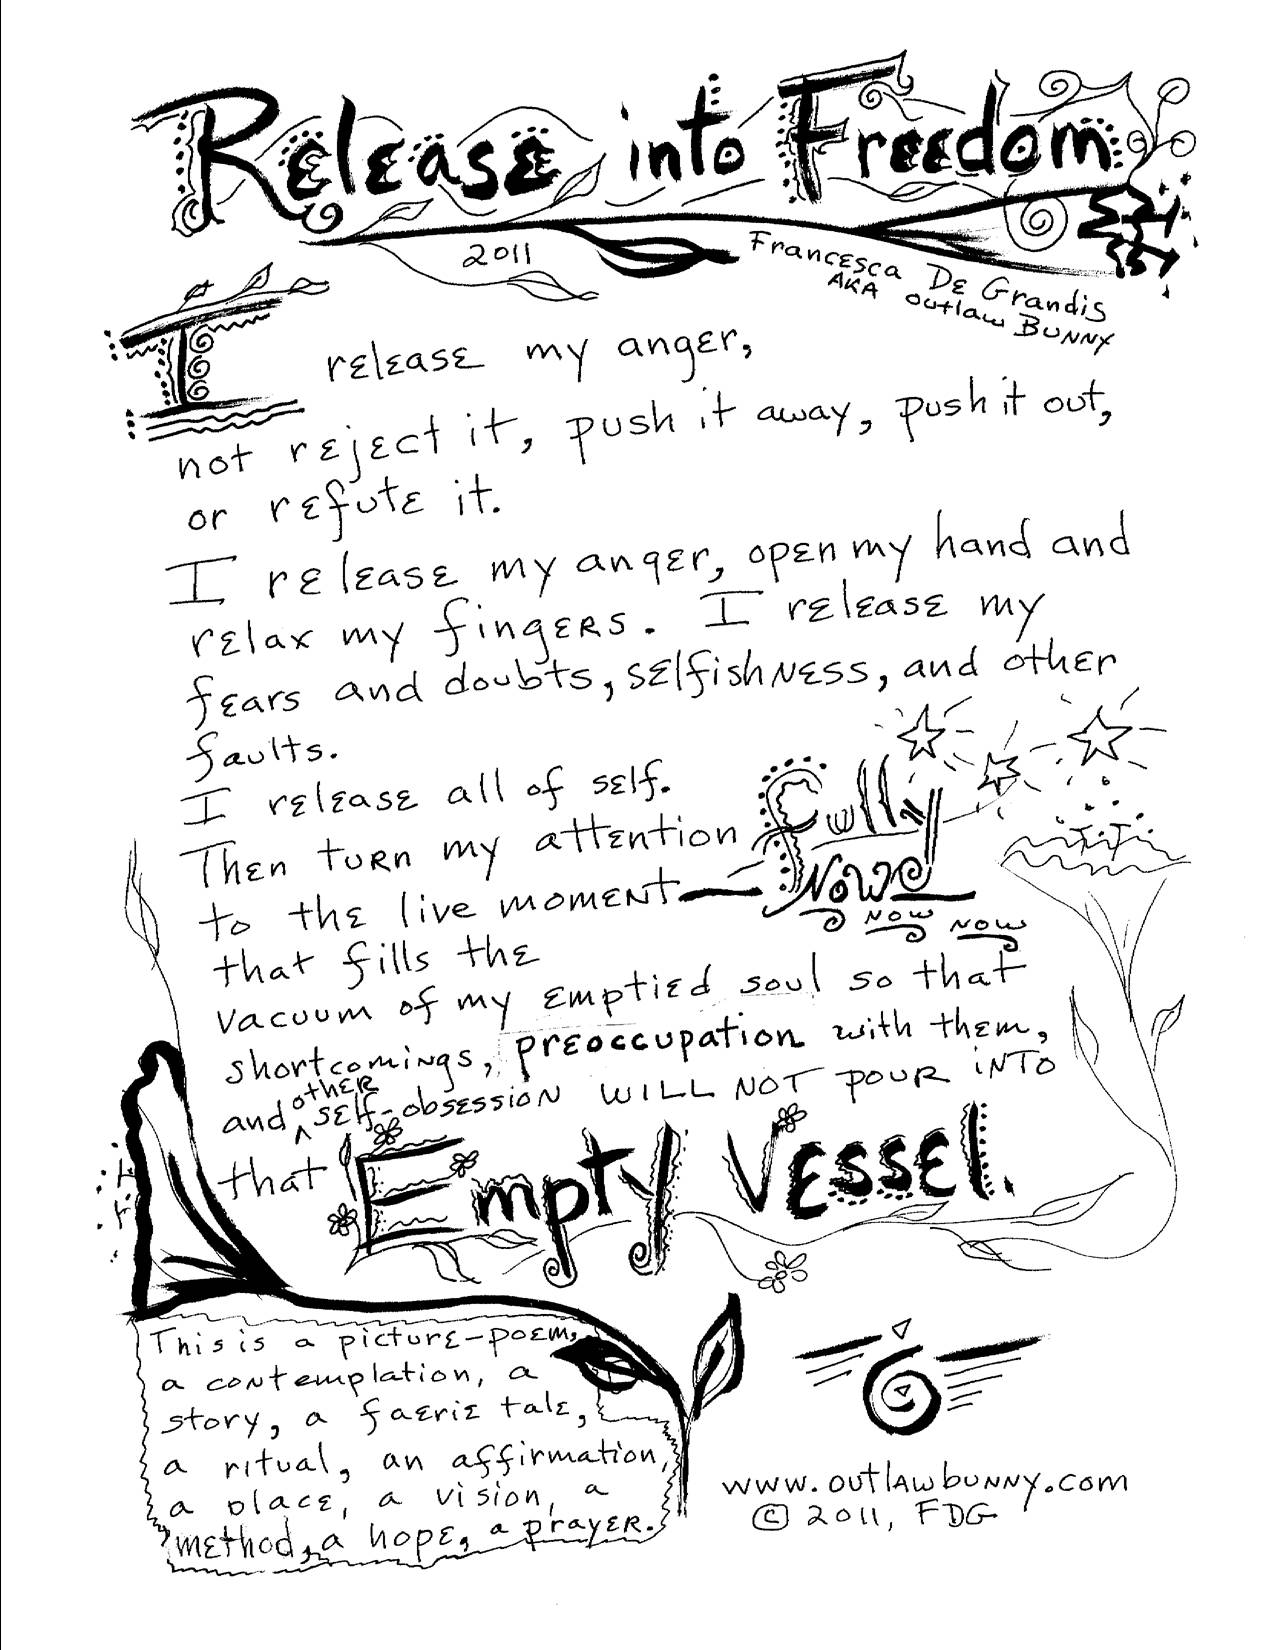 Release into Freedom
2011
Francesca De Grandis
AKA Outlaw Bunny
I release my anger,
not reject it, push it away, push it out,
or refute it.
I release my anger, open my hand and
relax my fingers. I release my
fears and doubts, selfishness, and other
faults.
I release all of self.
Then turn my attention Fully
to the live moment—Now
Now Now
that fills the
vacuum of my emptied soul so that
shortcomings, preoccupation with them,
and other self-obsession WILL NOT POUR INTO
that Empty Vessel.
This is a picture-poem,
a contemplation, a
story, a faerie tale,
a ritual, an affirmation,
a place, a vision, a
method, a hope, a prayer.
www.outlawbunny.com
© 2011, FDG